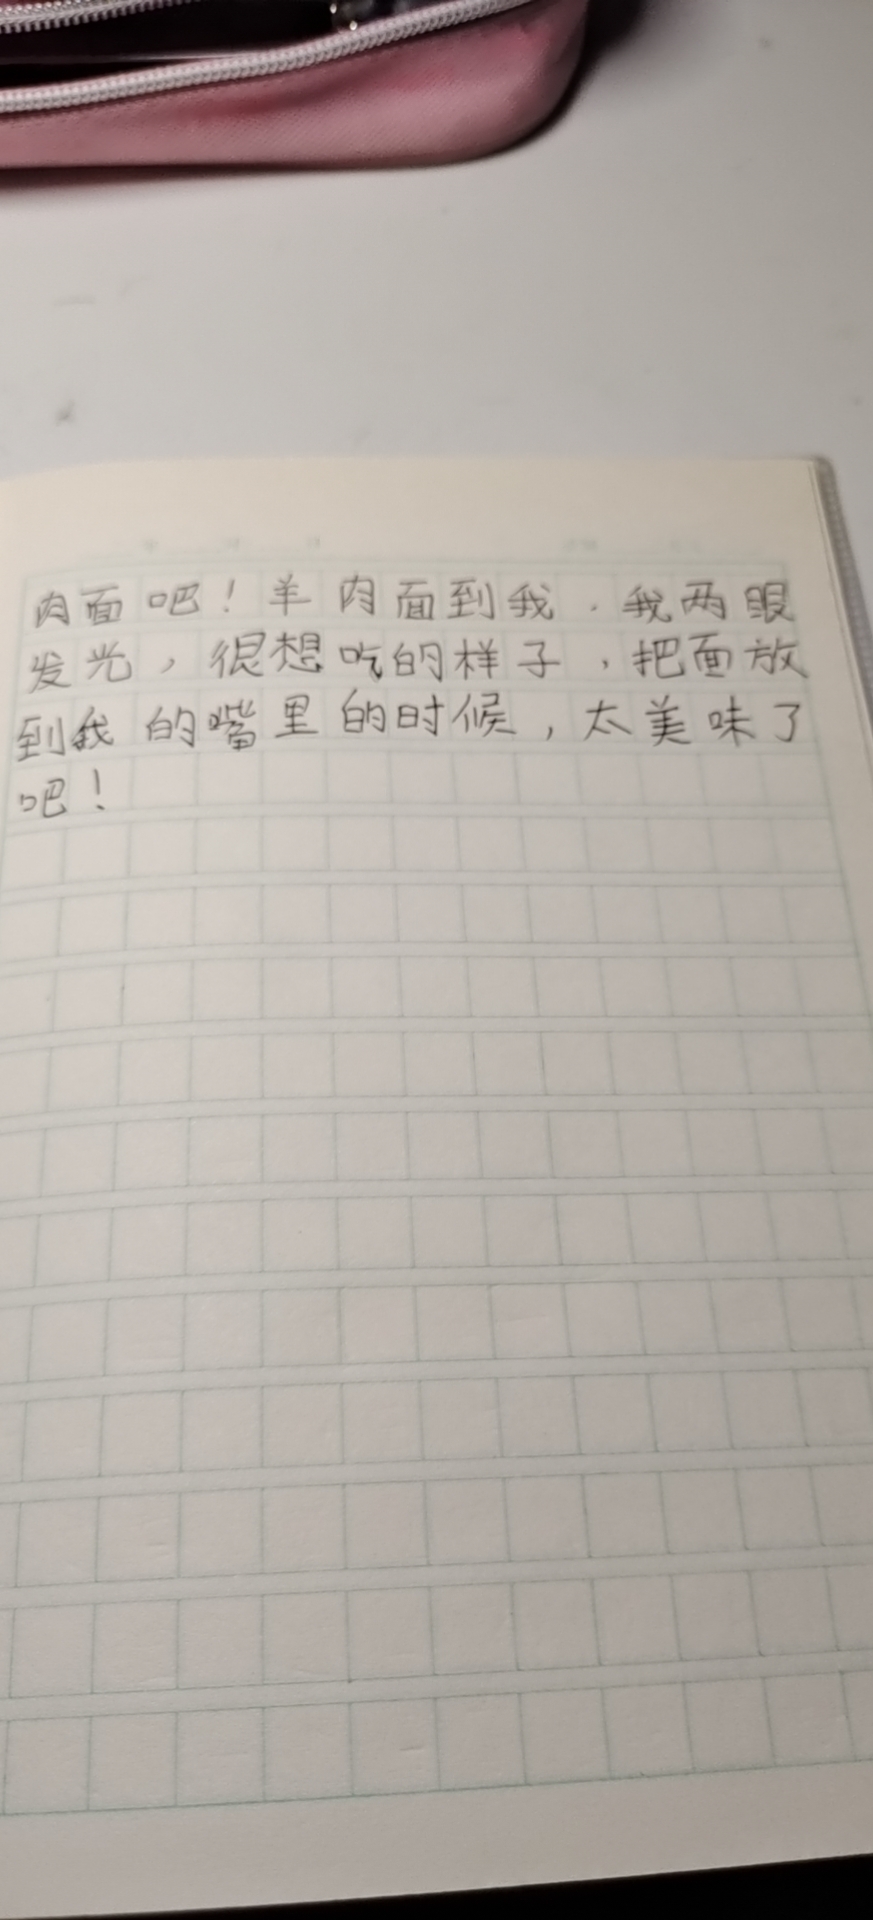 肉面吧！羊肉面到我．我两眼
发光，很想吃的样子，把面放
到我的嘴里的时候，太美味了
吧！